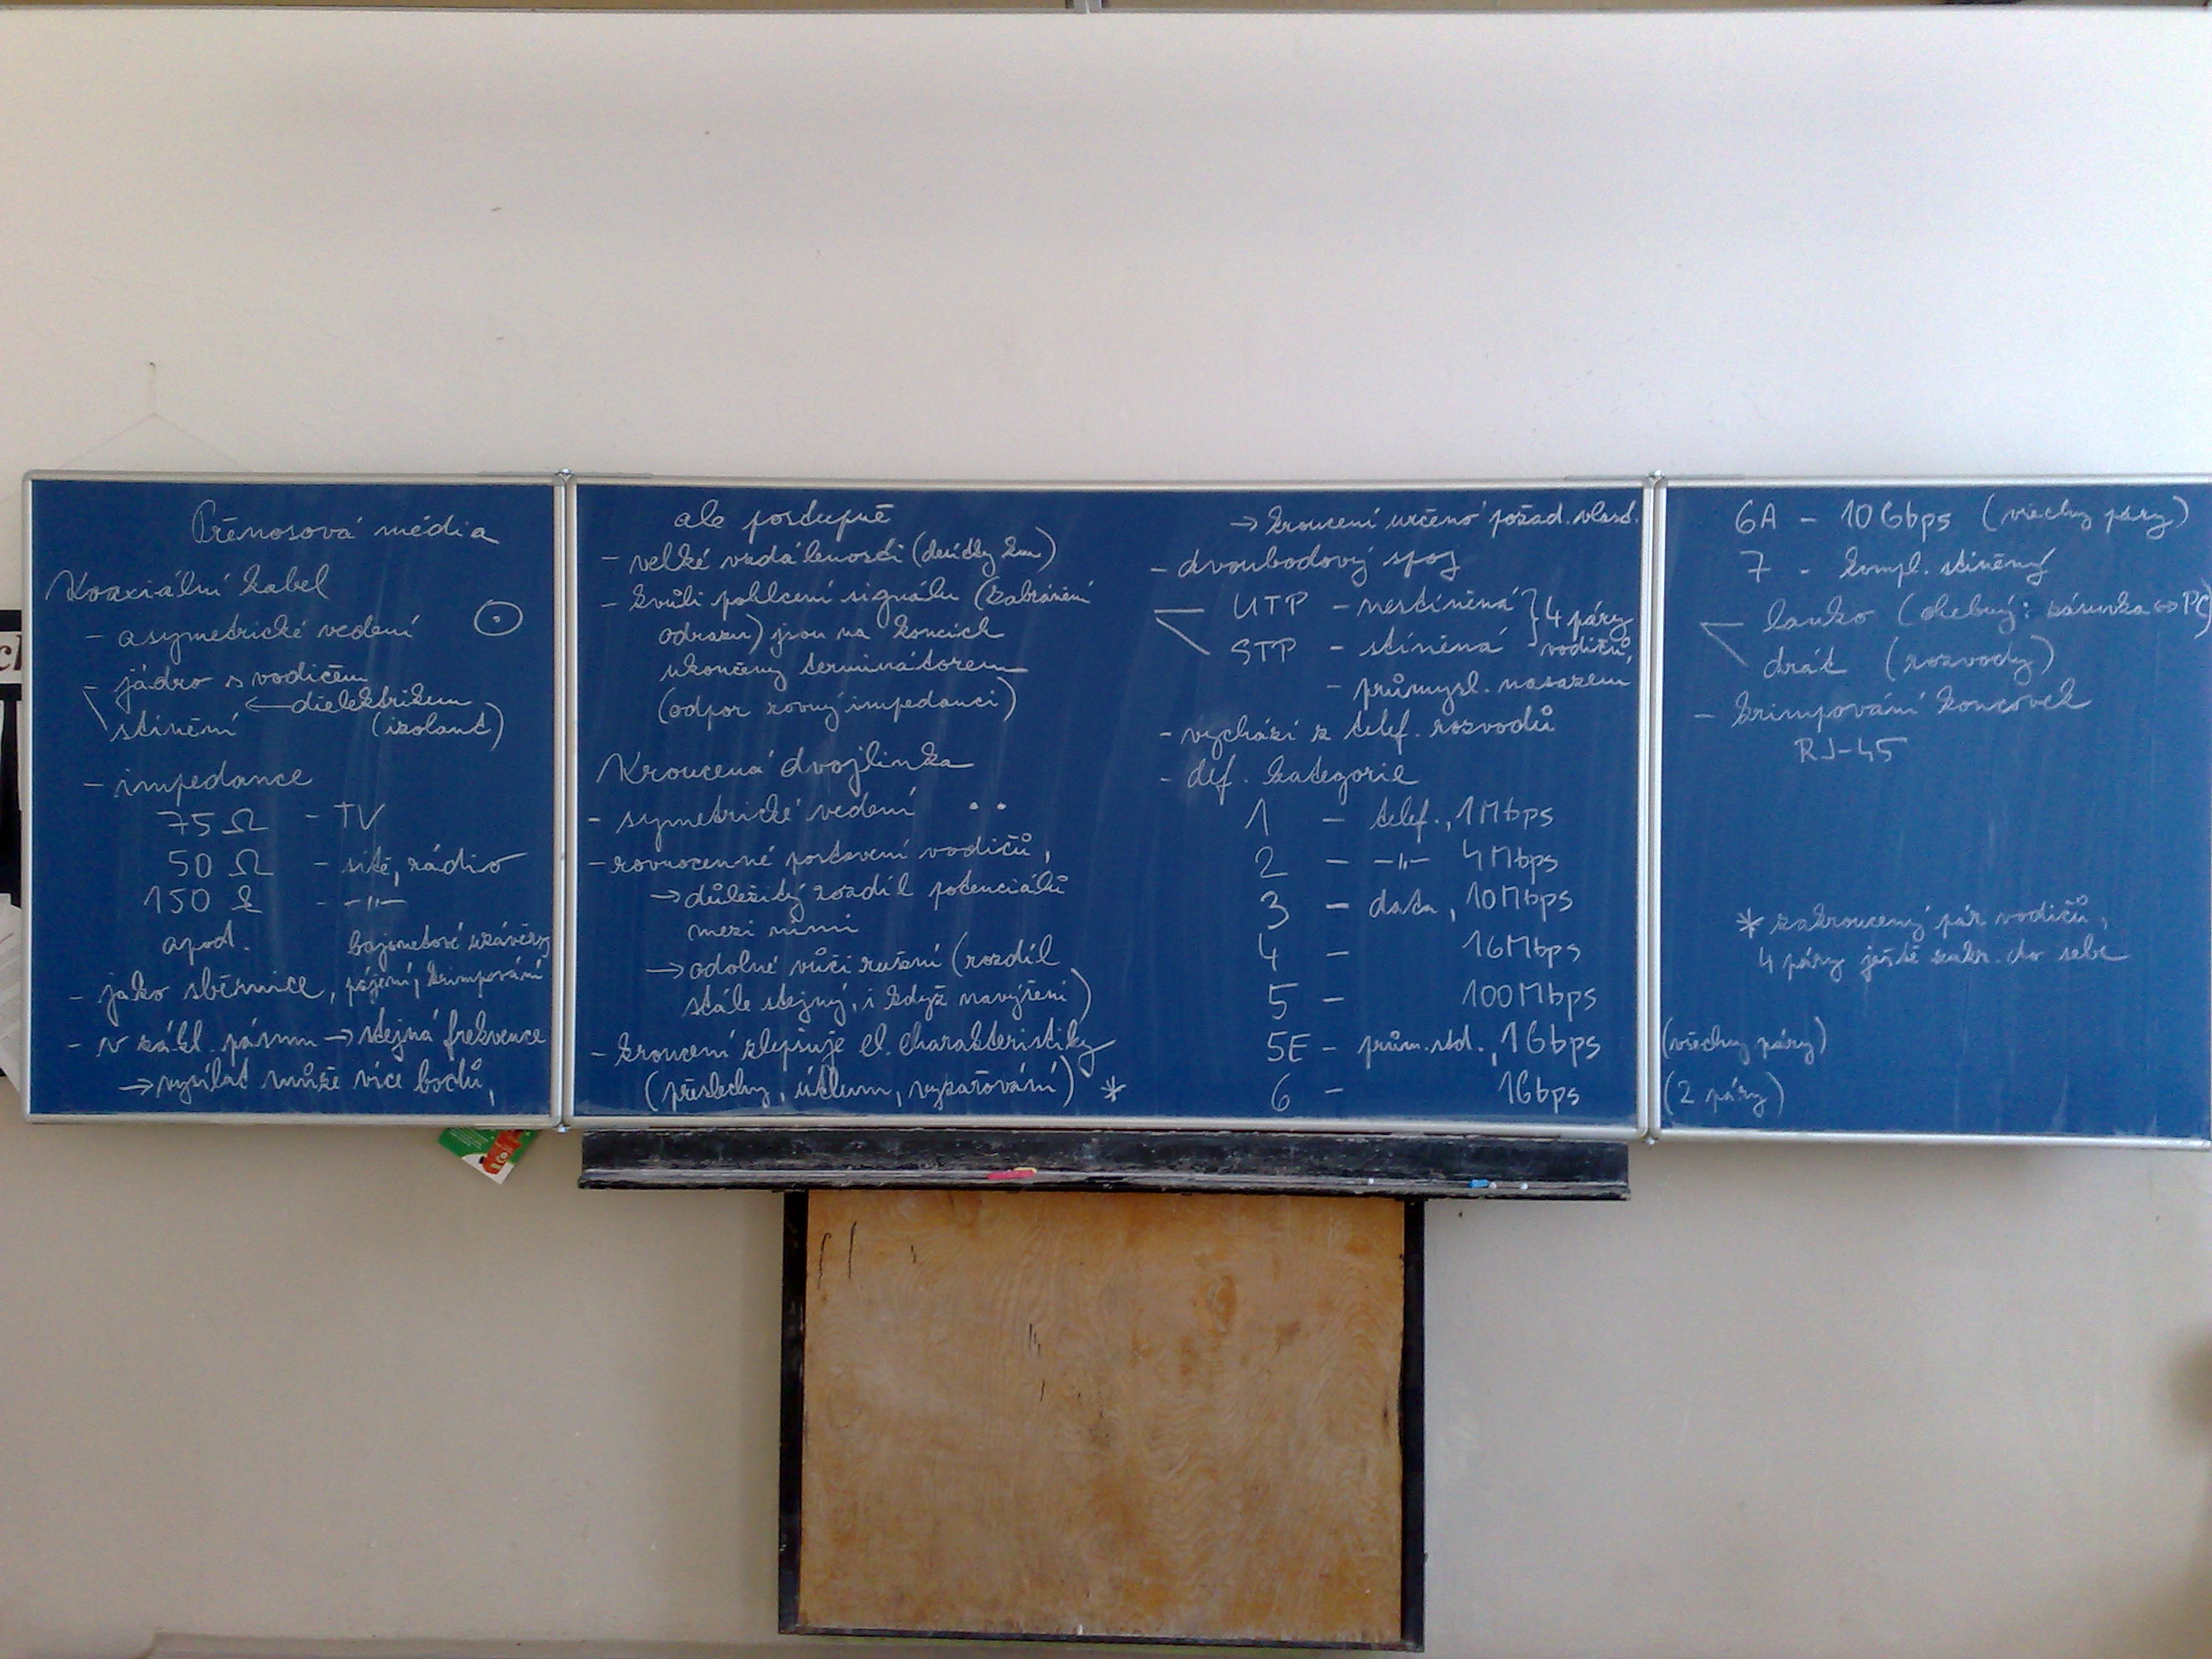 Přenosová média
Koaxiální kabel
- asymetrické vedení
- jádro s vodičem
← dielektrikem
stínění (izolant)
- impedance
75 Ω - TV
50 Ω - sítě, rádio
150 Ω - -"-
apod. bajonetové uzávěry
- jako sběrnice, pájení, krimpování
- v zákl. pásmu → stejná frekvence
→ vysílat může více bodů,
ale postupně
- velké vzdálenosti (desítky km)
- kvůli pohlcení signálu (zabránění
odrazu) jsou na koncích
ukončeny terminátorem
(odpor rovný impedanci)
Kroucená dvojlinka
- symetrické vedení
- rovnocenné postavení vodičů,
→ důležitý rozdíl potenciálů
mezi nimi
→ odolné vůči rušení (rozdíl
stále stejný, i když navýšení)
- kroucení zlepšuje el. charakteristiky
(přeslechy, útlum, vyzařování) *
→ kroucení určeno požad. vlast.
- dvoubodový spoj
UTP - nestíněná } 4 páry
STP - stíněná vodičů,
- průmysl. nasazení
- vychází z telef. rozvodů
- def. kategorie
1 - telef., 1Mbps
2 - -"- 4Mbps
3 - data, 10Mbps
4 - 16Mbps
5 - 100Mbps
5E - prům. std., 1Gbps (všechny páry)
6 - 1Gbps (2 páry)
6A - 10Gbps (všechny páry)
7 - kompl. stíněný
lanko (ohebný: zásuvka ↔ PC)
drát (rozvody)
- krimpování koncovek
RJ-45
* zakroucený pár vodičů,
4 páry ještě zakr. do sebe